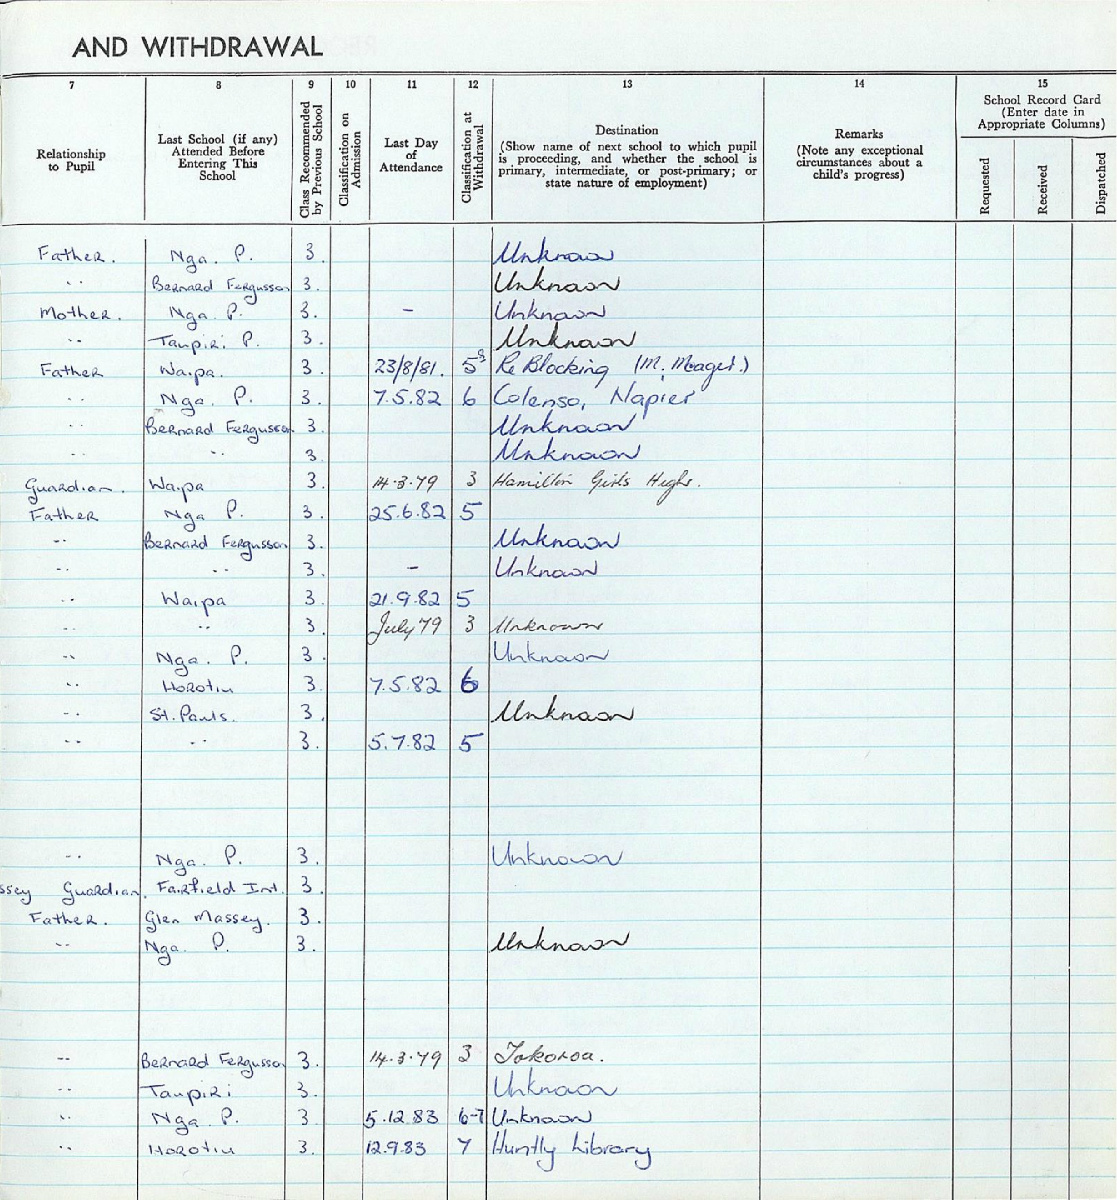 AND WITHDRAWAL
7 8 9 10 11 12 13 14 15
Relationship to Pupil
Last School (if any) Attended Before Entering This School
Class Recommended by Previous School
Classification on Admission
Last Day of Attendance
Classification at Withdrawal
Destination (Show name of next school to which pupil is proceeding, and whether the school is primary, intermediate, or post-primary; or state nature of employment)
Remarks (Note any exceptional circumstances about a child's progress)
School Record Card (Enter date in Appropriate Columns)
Requested Received Dispatched
Father. Nga. P. 3. Unknown
" Bernard Fergusson 3. Unknown
Mother. Nga. P. 3. - Unknown
" Taupiri P. 3. Unknown
Father Waipa. 3. 23/8/81. 5 Re Blocking
" Nga. P. 3. 7.5.82 6 Colenso, Napier
" Bernard Fergusson 3. Unknown
" " 3. Unknown
Guardian. Waipa 3. 14.3.79 3 Hamilton Girls High.
Father Nga P. 3. 25.6.82 5
" Bernard Fergusson 3. Unknown
" " 3. - Unknown
" Waipa 3. 21.9.82 5
" " 3. July '79 3 Unknown
" Nga. P. 3. Unknown
" Horotiu 3. 7.5.82 6
" St. Pauls. 3. Unknown
" " 3. 5.7.82 5
" Nga. P. 3. Unknown
ssey Guardian. Fairfield Int. 3.
Father. Glen Massey. 3.
" Nga. P. 3. Unknown
" Bernard Fergusson 3. 14.3.79 3 Tokoroa.
" Taupiri 3. Unknown
" Nga. P. 3 5.12.83 6-7 Unknown
" Horotiu 3. 12.9.83 7 Huntly Library